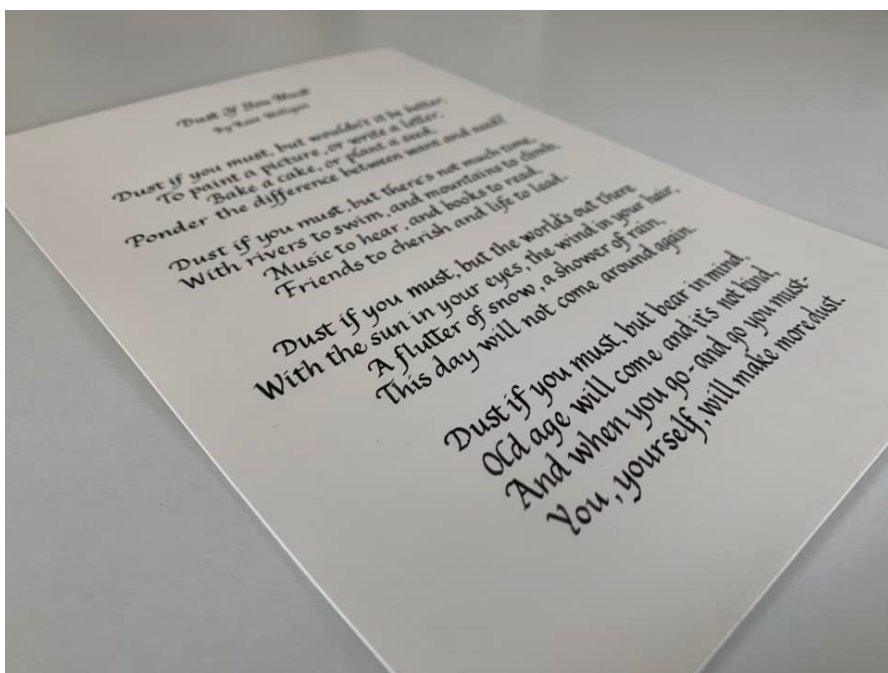 Dust If You Must
By Rose Milligan
Dust if you must, but wouldn't it be better,
To paint a picture, or write a letter,
Bake a cake, or plant a seed.
Ponder the difference between want and need?
Dust if you must, but there's not much time,
With rivers to swim, and mountains to climb.
Music to hear, and books to read,
Friends to cherish and life to lead.
Dust if you must, but the world's out there
With the sun in your eyes, the wind in your hair,
A flutter of snow, a shower of rain,
This day will not come around again.
Dust if you must, but bear in mind,
Old age will come and it's not kind,
And when you go-and go you must-
You, yourself, will make more dust.